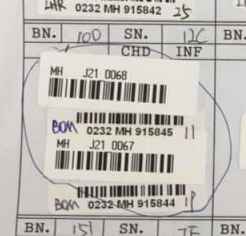 LHR 0232 MH 915842 25
BN. 10D SN. 12C BN.
CHD INF
MH J21 0068
BOM 0232 MH 915845 11
MH J21 0067
BOM 0232 MH 915844 1P
BN. 151 SN. 7F BN.